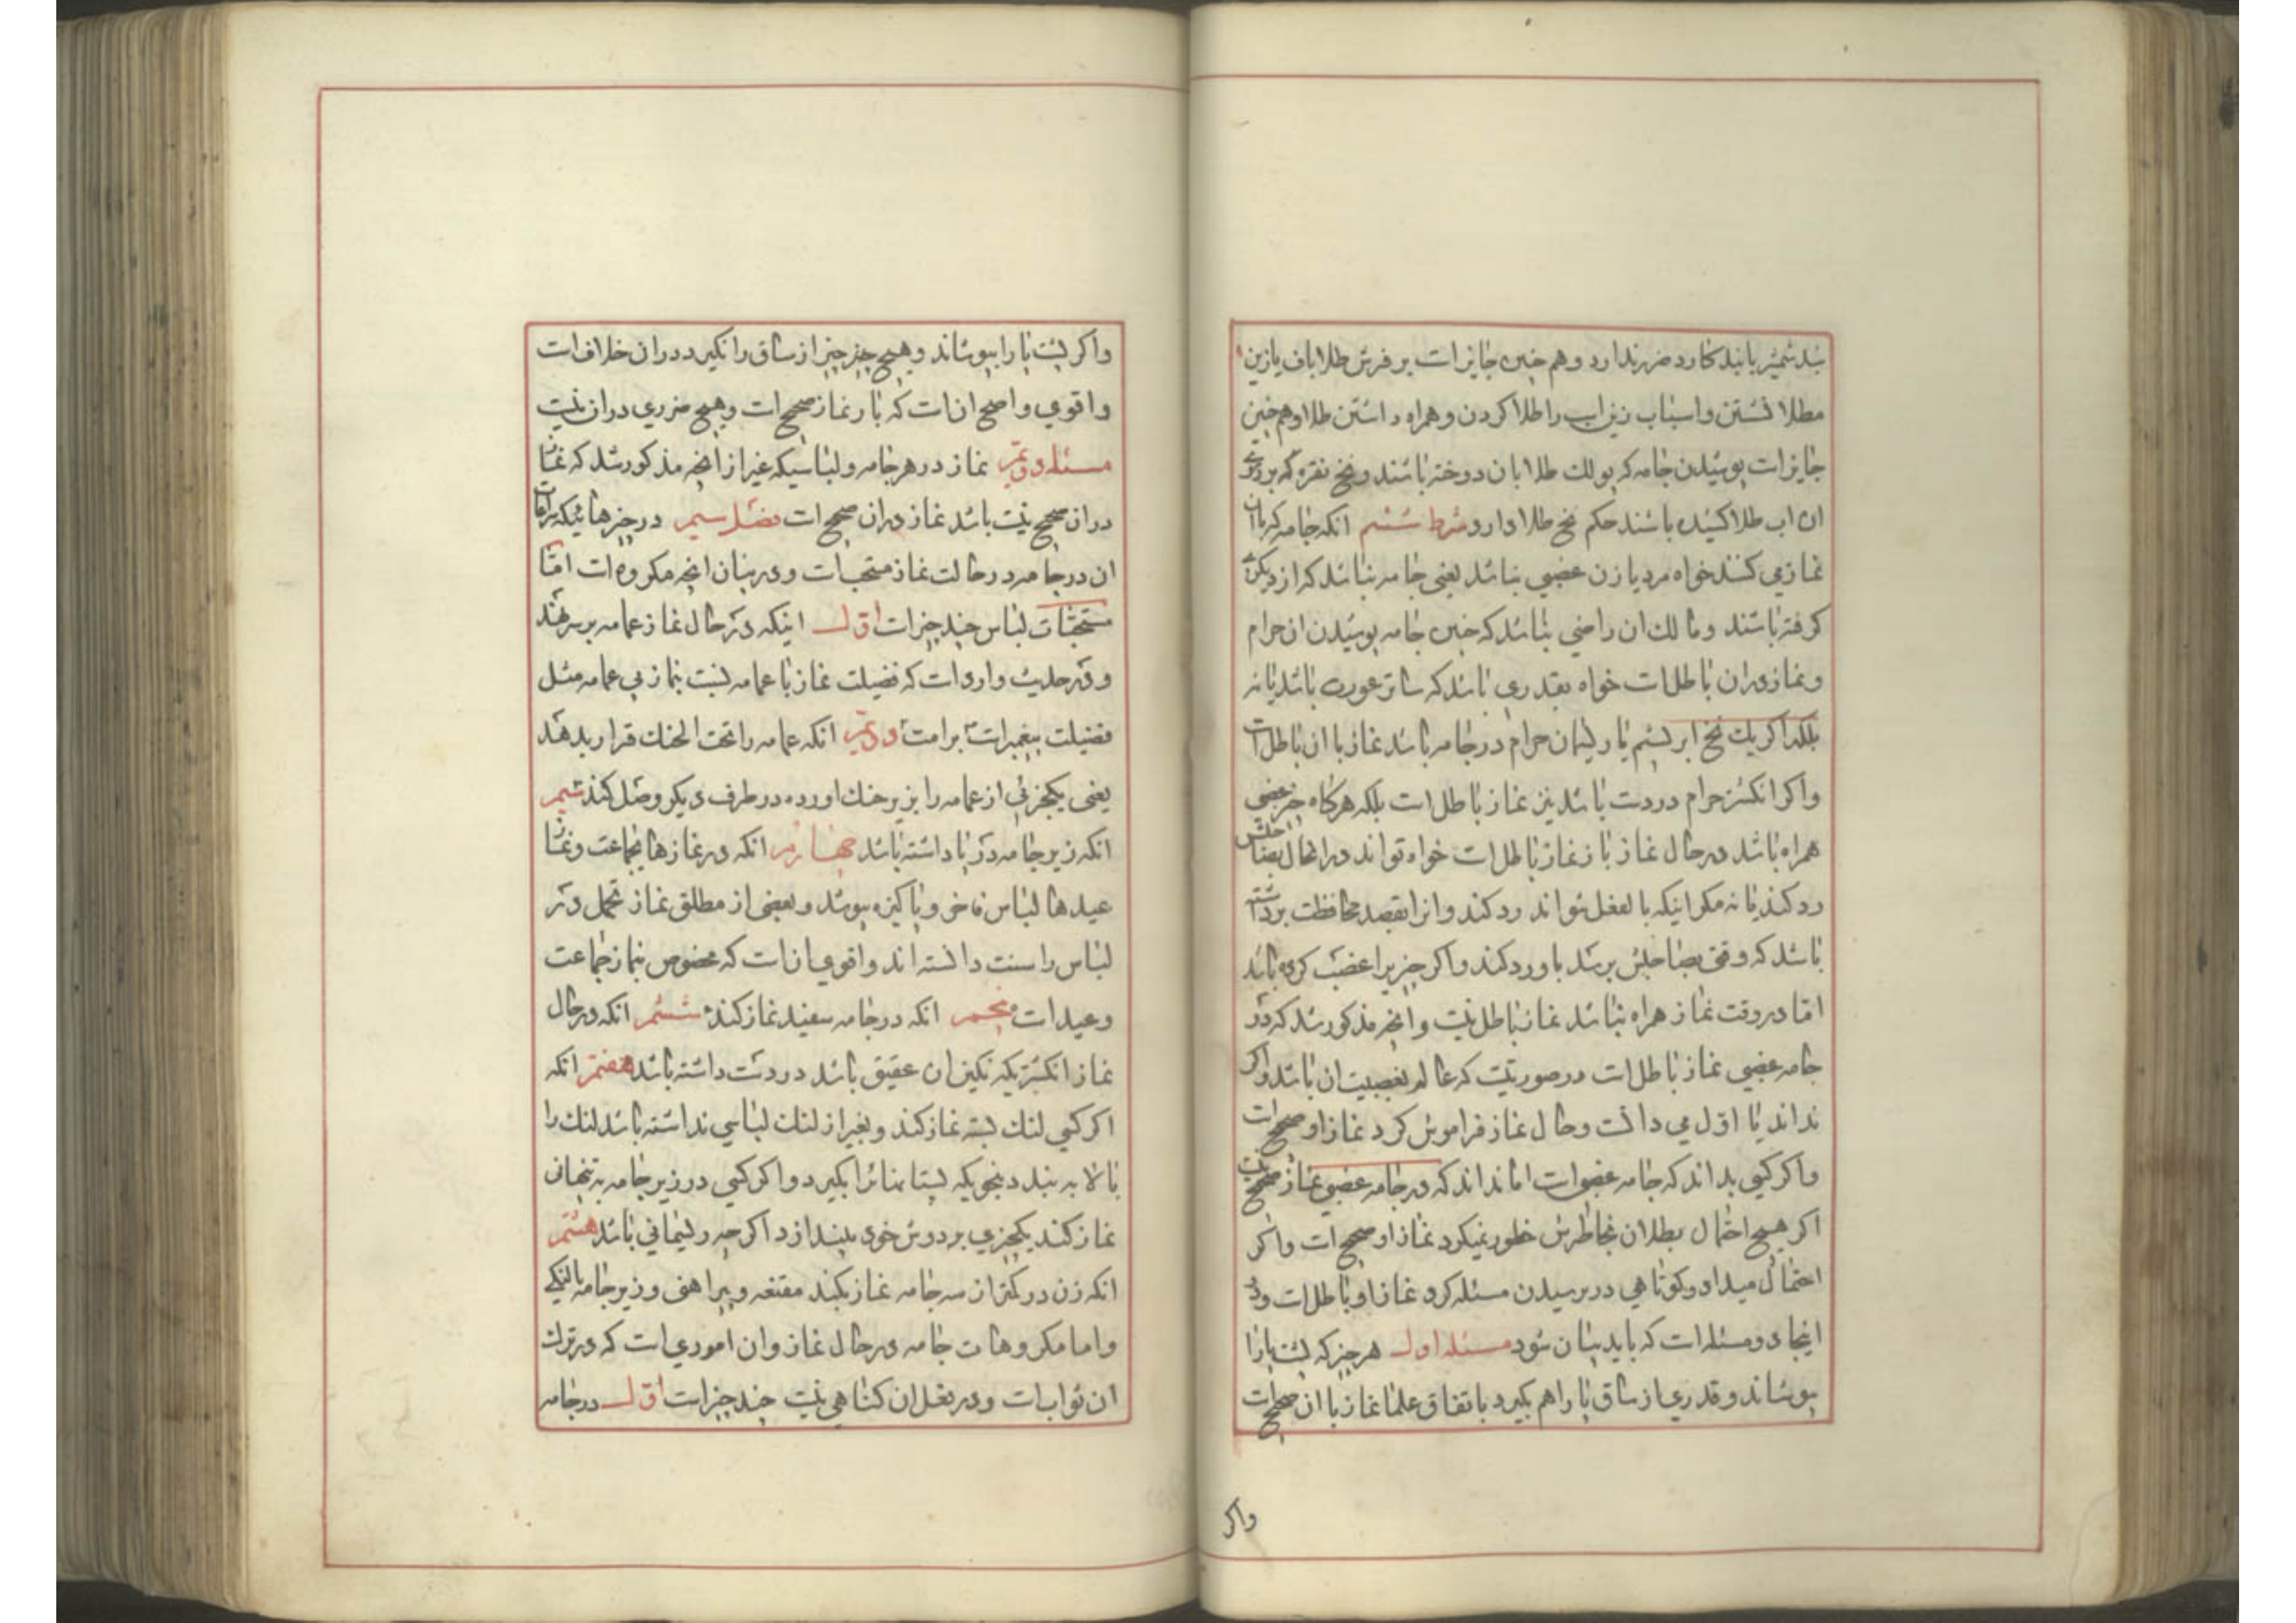 بند شمشیر یا بند کارد ضرر ندارد و هم چنین جایز است بر فرش طلا باف یا زین
مطلا نشستن و اسباب زین اسب را طلا کردن و همراه داشتن طلا و هم چنین
جایز است پوشیدن جامه که پولك طلا بان دوخته باشند و نخ نقره که بر روی
ان اب طلا کشیده باشند حکم نخ طلا دارد شرط ششم انکه جامه که با ان
نماز می کنند خواه مرد یا زن غصبی نباشد یعنی جامه نباشد که از دیکری
کرفته باشند و مالك ان راضی نباشد که چنین جامه پوشیدن ان حرام
و نماز در ان باطل است خواه بقدری باشد که ساتر عورت باشد یا نه
بلکه اکر یك نخ ابریشم یا ریسمان حرام در جامه باشد نماز با ان باطل است
و اکر انکشتر حرام در دست باشد نیز نماز باطل است بلکه هرکاه چیز غصبی
همراه باشد در حال نماز باز نماز باطل است خواه تواند در انحال بصاحبش
رد کند یا نه مکر اینکه بالفعل نتواند رد کند و انرا بقصد محافظت برداشته
باشد که وقتی بصاحبش برسد باو رد کند و اکر چیزیرا غصب کرده باشد
اما در وقت نماز همراه نباشد نماز باطل نیست و انچه مذکور شد که در
جامه غصبی نماز باطل است در صورتیست که عالم بغصبیت ان باشد و اکر
نداند یا اول می دانست و حال نماز فراموش کرد نماز او صحیح است
و اکر کسی بداند که جامه غصبی است اما نداند که در جامه غصبی نماز صحیح نیست
اکر هیچ احتمال بطلان بخاطرش خطور نمیکرد نماز او صحیح است و اکر
احتمال میداد و کوتاهی در پرسیدن مسئله کرد نماز او باطل است و در
اینجا دو مسئله است که باید بیان شود مسئله اول هر چیز که پشت پا را
بپوشاند و قدری از ساق پا را هم بکیرد باتفاق علما نماز با ان صحیح است
واکر
و اکر پشت پا را بپوشاند و هیچ چیز از ساق را نکیرد در ان خلاف است
و اقوی و اصح ان است که با ان نماز صحیح است و هیچ ضرری در ان نیست
مسئله دویم نماز در هر جامه و لباسیکه غیر از انچه مذکور شد که نماز
در ان صحیح نیست باشد نماز در ان صحیح است فصل سیم در چیزهائیکه مراعات
ان در جامه در حالت نماز مستحب است و در بیان انچه مکروه است اما
مستحبات لباس چند چیز است اول اینکه در حال نماز عمامه بر سر نهند
و در حدیث وارد است که فضیلت نماز با عمامه نسبت بنماز بی عمامه مثل
فضیلت پیغمبر است بر امت دویم انکه عمامه را تحت الحنك قرار بدهند
یعنی یکجزئی از عمامه را بزیر حنك اورده در طرف دیکر وصل کند سیم
انکه زیر جامه در پا داشته باشد چهارم انکه در نمازها بجماعت و نماز
عیدها لباس فاخر و پاکیزه بپوشد و بعضی از مطلق نماز تجمل در
لباس را سنت دانسته اند و اقوی ان است که مخصوص بنماز جماعت
و عید است پنجم انکه در جامه سفید نماز کند ششم انکه در حال
نماز انکشتریکه نکین ان عقیق باشد در دست داشته باشد هفتم انکه
اکر کسی لنك بسته نماز کند و بغیر از لنك لباسی نداشته باشد لنك را
بالا به بندد بنحویکه پستانها را بکیرد و اکر کسی در زیر جامه به تنهائی
نماز کند یکچیزی بر دوش خود بیندازد اکر چه ریسمانی باشد هشتم
انکه زن در کمتر از سه جامه نماز نکند مقنعه و پیراهنی و زیر جامه یا لنکی
و اما مکروهات جامه در حال نماز و ان اموری است که در ترك
ان ثواب است و در بفعل ان کناهی نیست چند چیز است اول در جامه